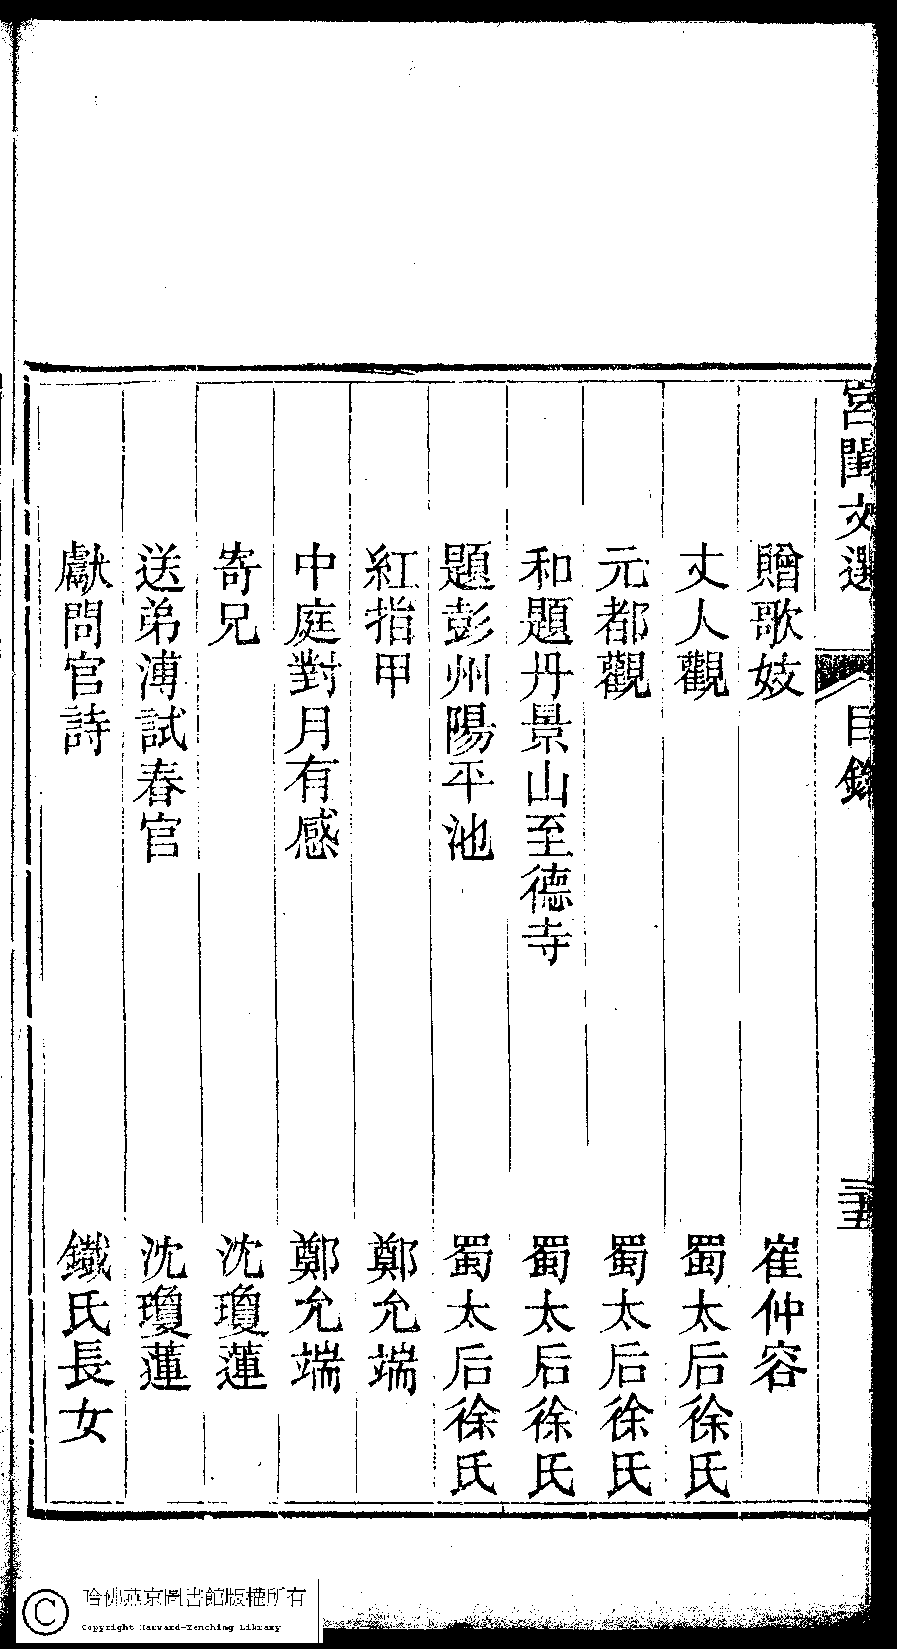 宮閨文選 目錄 三五
贈歌妓 崔仲容
丈人觀 蜀太后徐氏
元都觀 蜀太后徐氏
和題丹景山至德寺 蜀太后徐氏
題彭州陽平池 蜀太后徐氏
紅指甲 鄭允端
中庭對月有感 鄭允端
寄兄 沈瓊蓮
送弟溥試春官 沈瓊蓮
獻問官詩 鐵氏長女
哈佛燕京圖書館版權所有
Copyright Harvard-Yenching Library